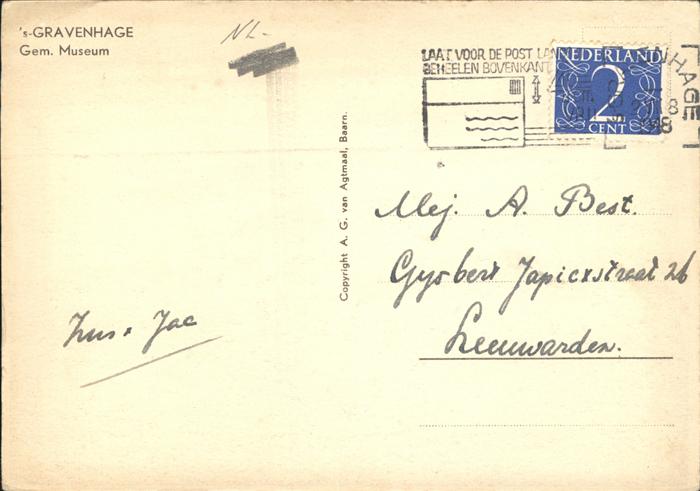 's-GRAVENHAGE
Gem. Museum
NL-
LAAT VOOR DE POST
BEHEELEN BOVENKANT
NHAGE
NEDERLAND
2
CENT
Copyright A. G. van Agtmaal, Baarn.
Mej. A. Best.
Gysbert Japicxstraat 26
Leeuwarden.
Zus + Jac